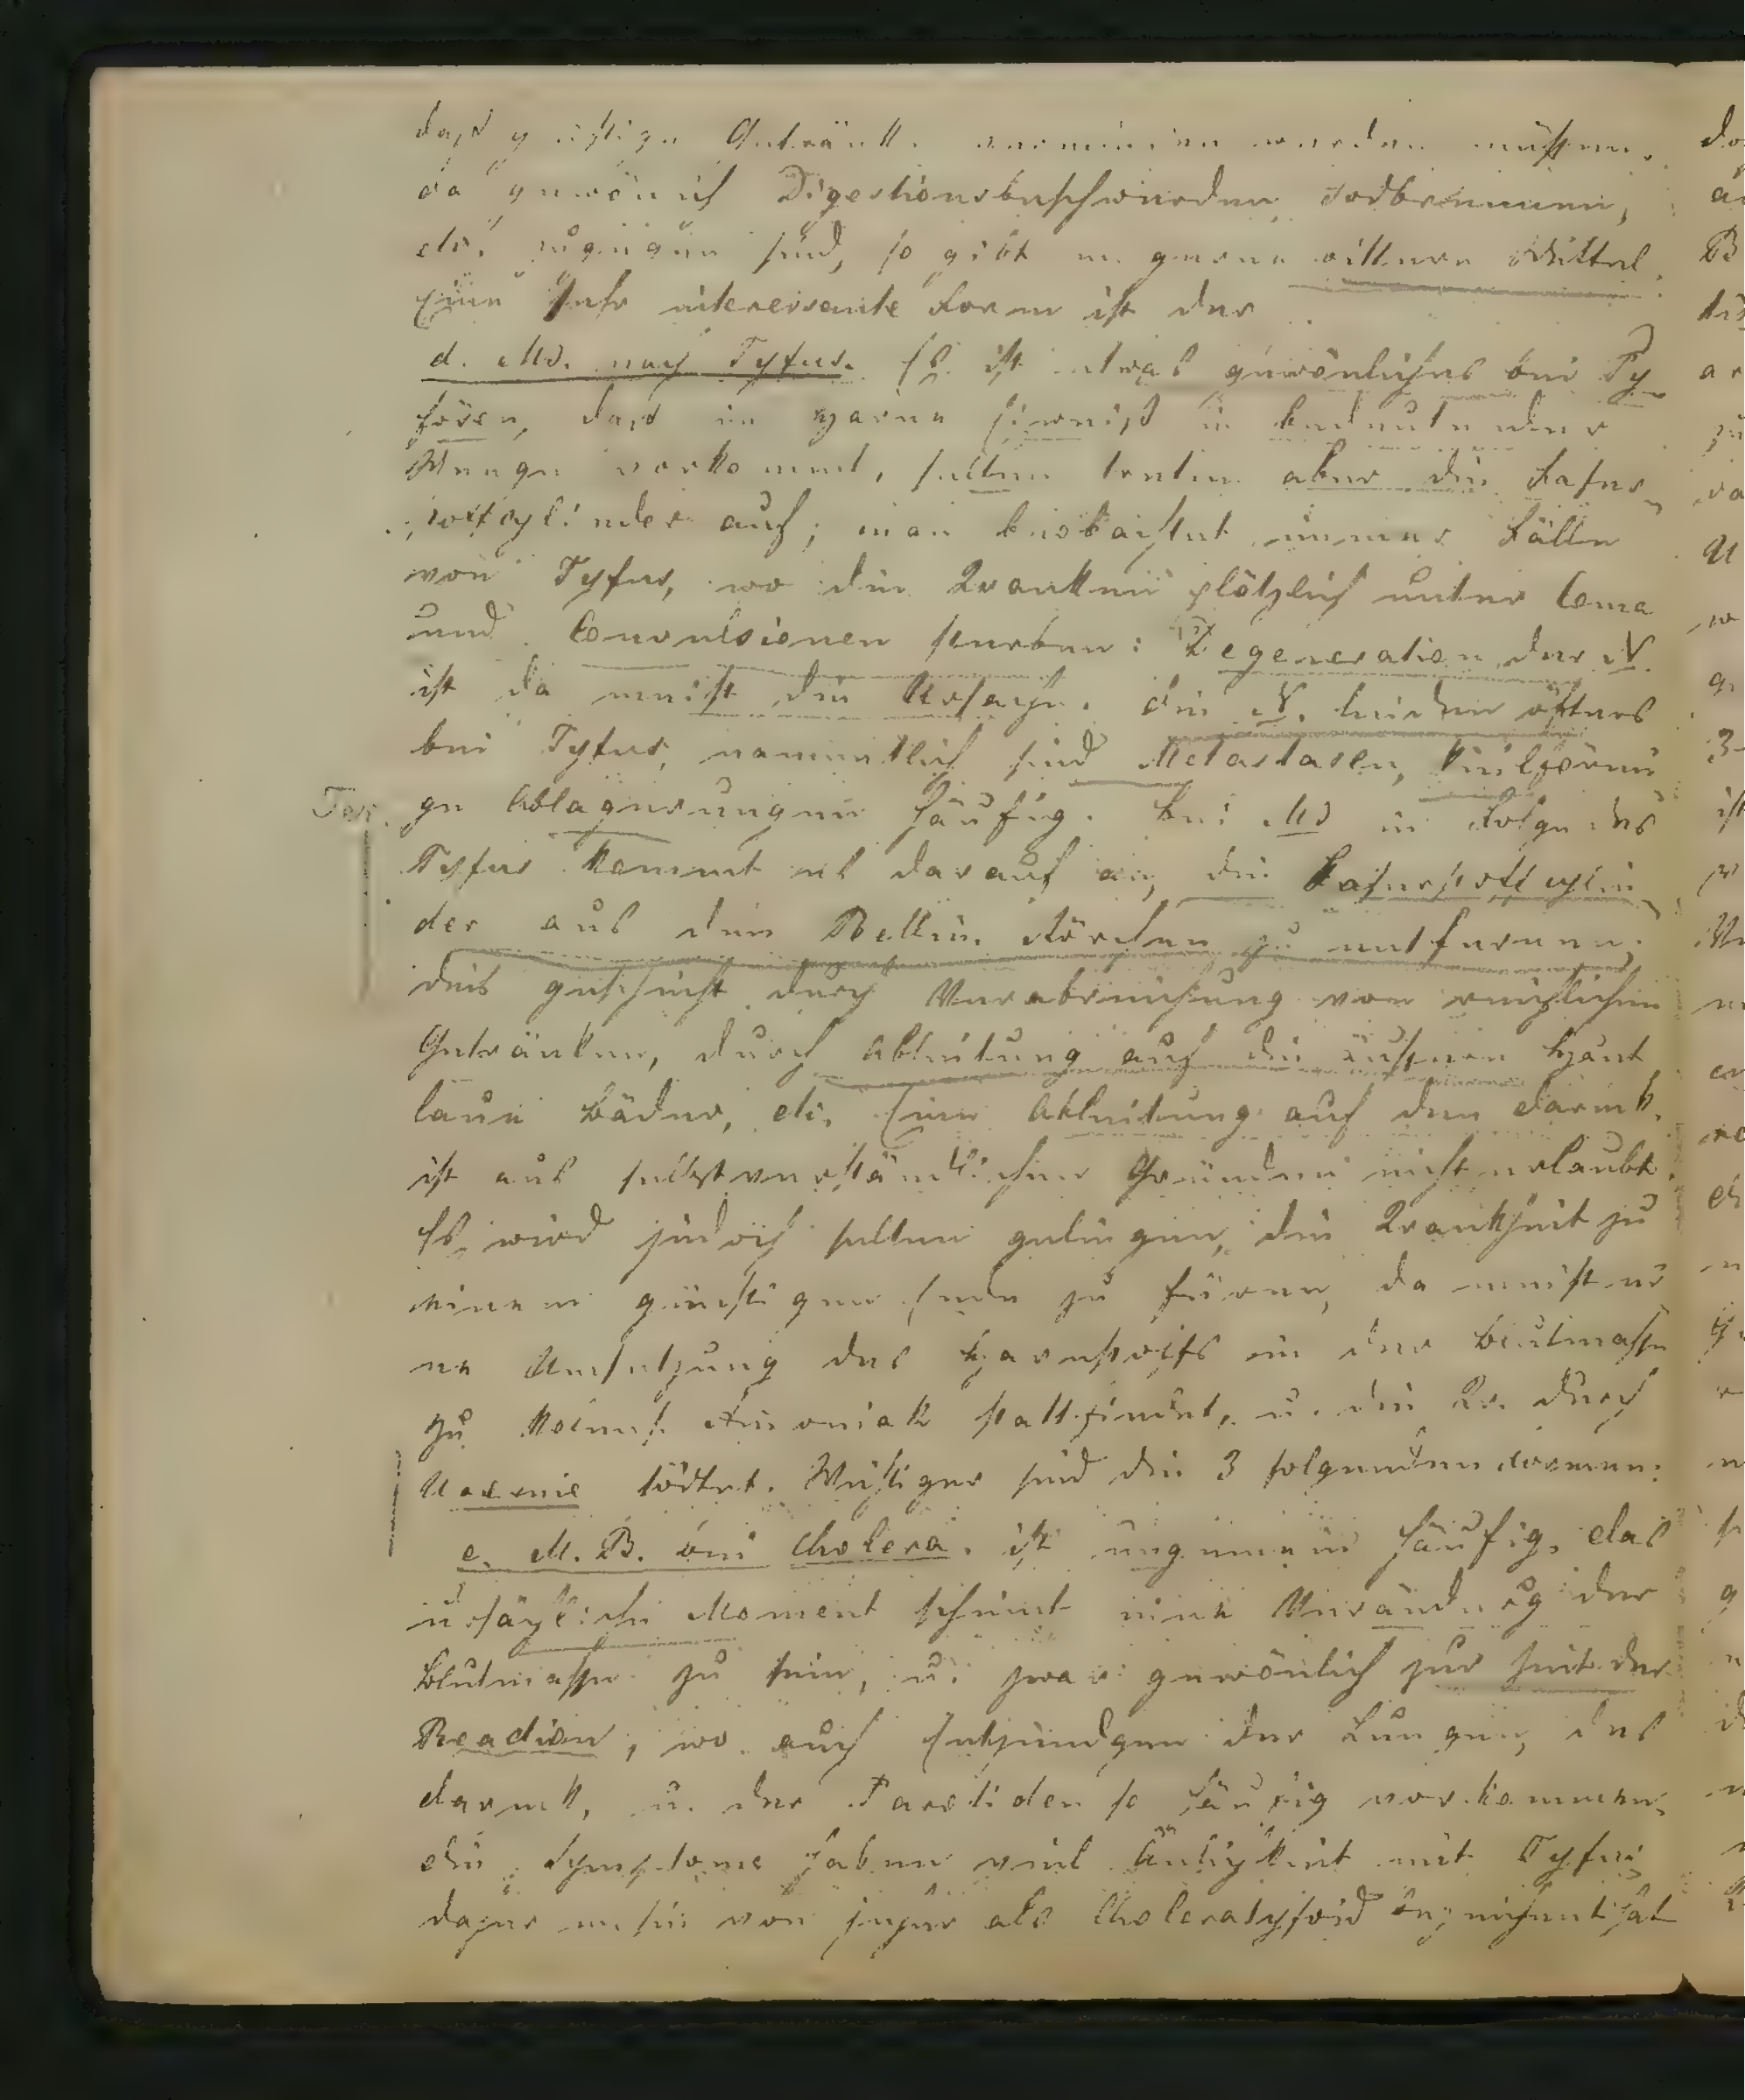 Getränk. werden müssen.
da gewönlich Digestionsbeschwerden, Sodbrennen,
etc. zugegen sind, so gibt m. gerne bittere Mittel.
Eine sehr interessante Form ist der
d. MB. nach Tyfus. Es ist etwas gewönliches bei Ty-
fösen, dass im Harne Eiweiß in bedeutender
Menge vorkommt, selten treten aber die Faser-
stoffcylinder auf; man beobachtet immer Fälle
von Tyfus, wo die Kranken plötzlich unter Coma
und Convulsionen sterben: Degeneration der N.
ist da meist die Ursache. Die N. leiden öfters
bei Tyfus, namentlich sind Metastasen, keilförmi
Ter. ge Ablagerungen häufig. Bei MB in Folge des
Tyfus kommt es darauf an, die Faserstoffcylin
der aus den Bellin. Rörchen zu entfernen;
dies geschieht durch Verabreichung von reichlichen
Getränken, durch Ableitung auf die äußere Haut
laue Bäder, etc. Eine Ableitung auf den Darmk.
ist aus selbstverständlichen Gründen nicht erlaubt.
Es wird jedoch selten gelingen, die Krankheit zu
einem günstigen Ende zu füren, da meist ei
ne Umsetzung des Harnstoffs in der Blutmasse
zu kolens. Ammoniak stattfindet, u. die Kr. durch
Uraemie tödtet. Wichtiger sind die 3 folgenden Formen:
e. M. B. bei Cholera. ist ungemein häufig. Das
ursächliche Moment scheint eine Veränderg der
Blutmasse zu sein, u. zwar gewönlich zur Zeit der
Reaction, wo auch Entzündgen der Lungen, des
Darmk, u. der Parotiden so häufig vorkommen.
Die Symptome haben viel Änlichkeit mit Tyfus
daher man sie von jeher als Choleratyfoid bezeichnet hat